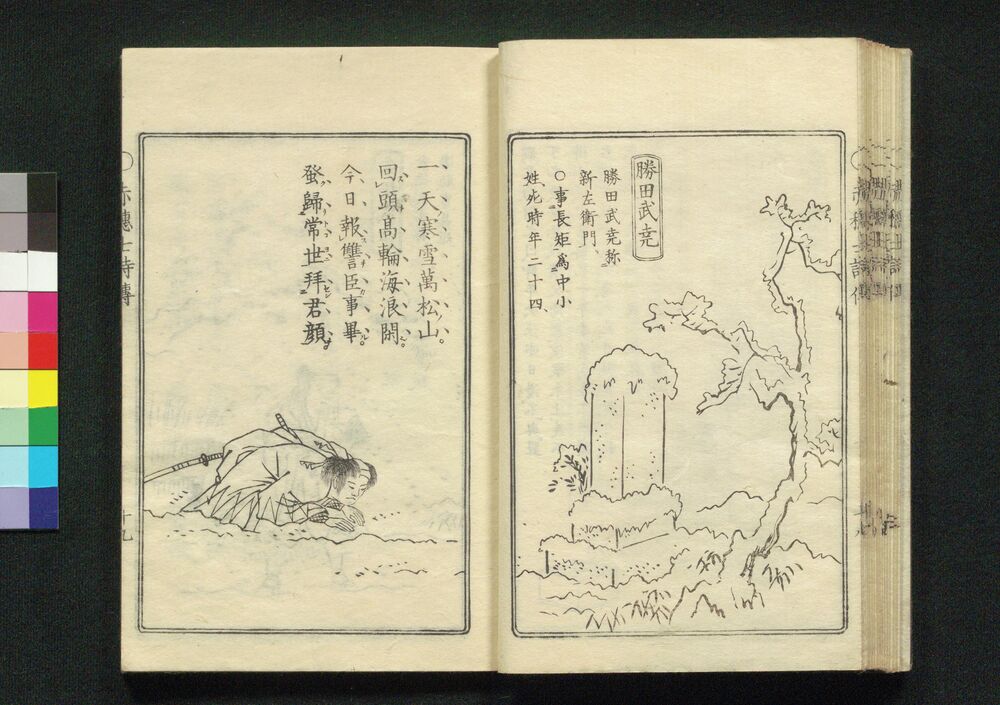 勝田武尭
勝田武尭称
新左衛門、
〇事長矩爲中小
姓、死時年二十四、
一天寒雪萬松山
回頭高輪海浪閒
今日報讐臣事畢
發歸常世拜君顔
赤穗士詩傳
十九